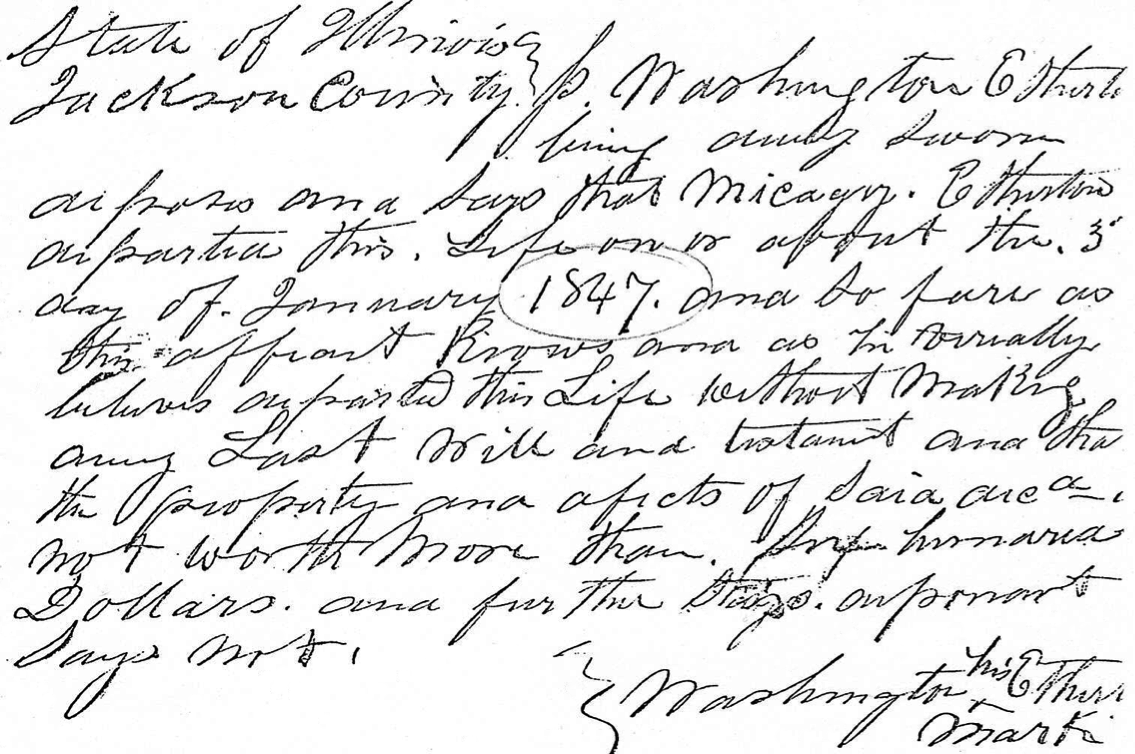 State of Illinois }
Jackson County } Washington Etherto
being duly sworn
deposes and Says that Micager. Etherton
departed this. Life on or about the. 3
day of. January 1847. and so fare as
this affiant Knows and as he verially
beleves departed this Life without Making
any Last Will and testamt and tha
the property and afects of Said dec
not worth More than. hundred
Dollars. and further this. deponant
Says not.
} Washington his Ether
x
Mark